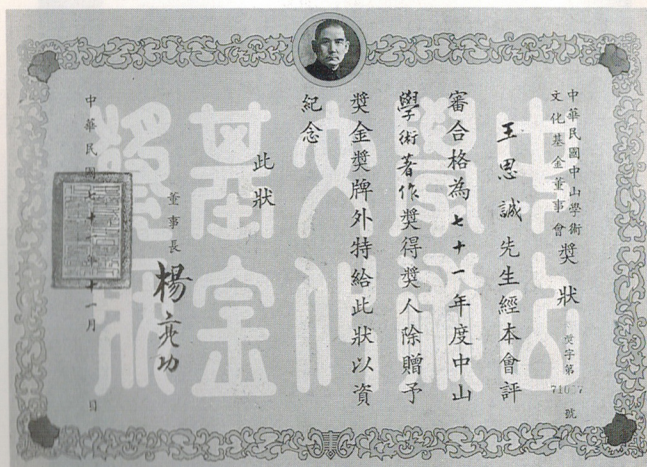 中華民國中山學術
文化基金董事會
獎狀
獎字第
號
王恩誠先生經本會評
審合格為七十一年度中山
學術著作獎得獎人除贈予
獎金獎牌外特給此狀以資
紀念
此狀
董事長
楊亮功
中華民國七十一年十一月 日
中山
學術
文化
基金
獎狀